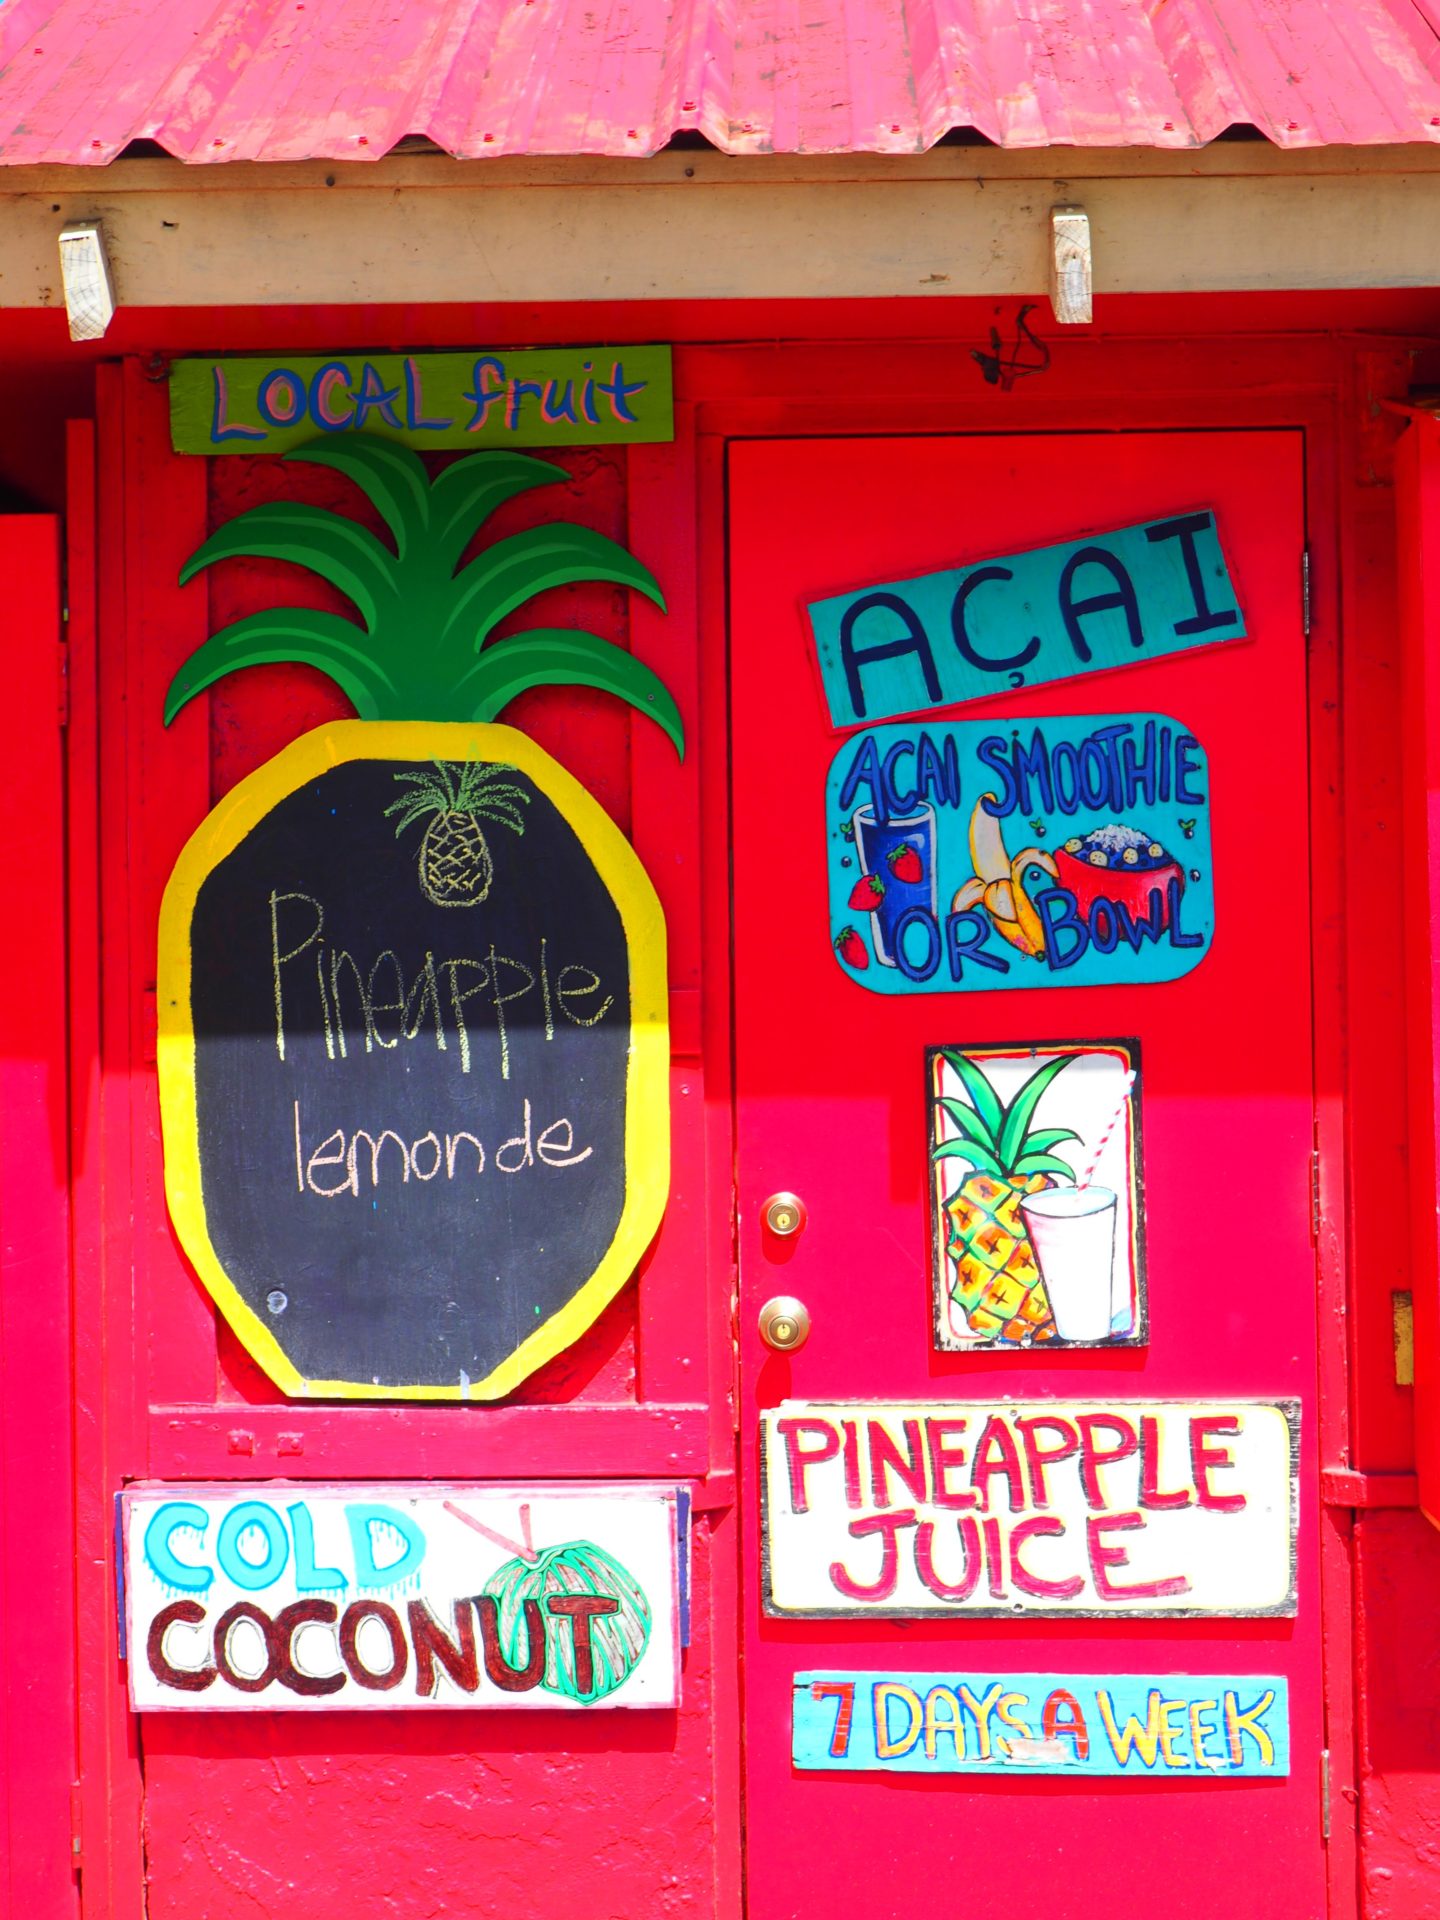 LOCAL fruit
Pineapple
lemonde
COLD
COCONUT
AÇAI
AÇAI SMOOTHIE
OR BOWL
PINEAPPLE
JUICE
7 DAYS A WEEK